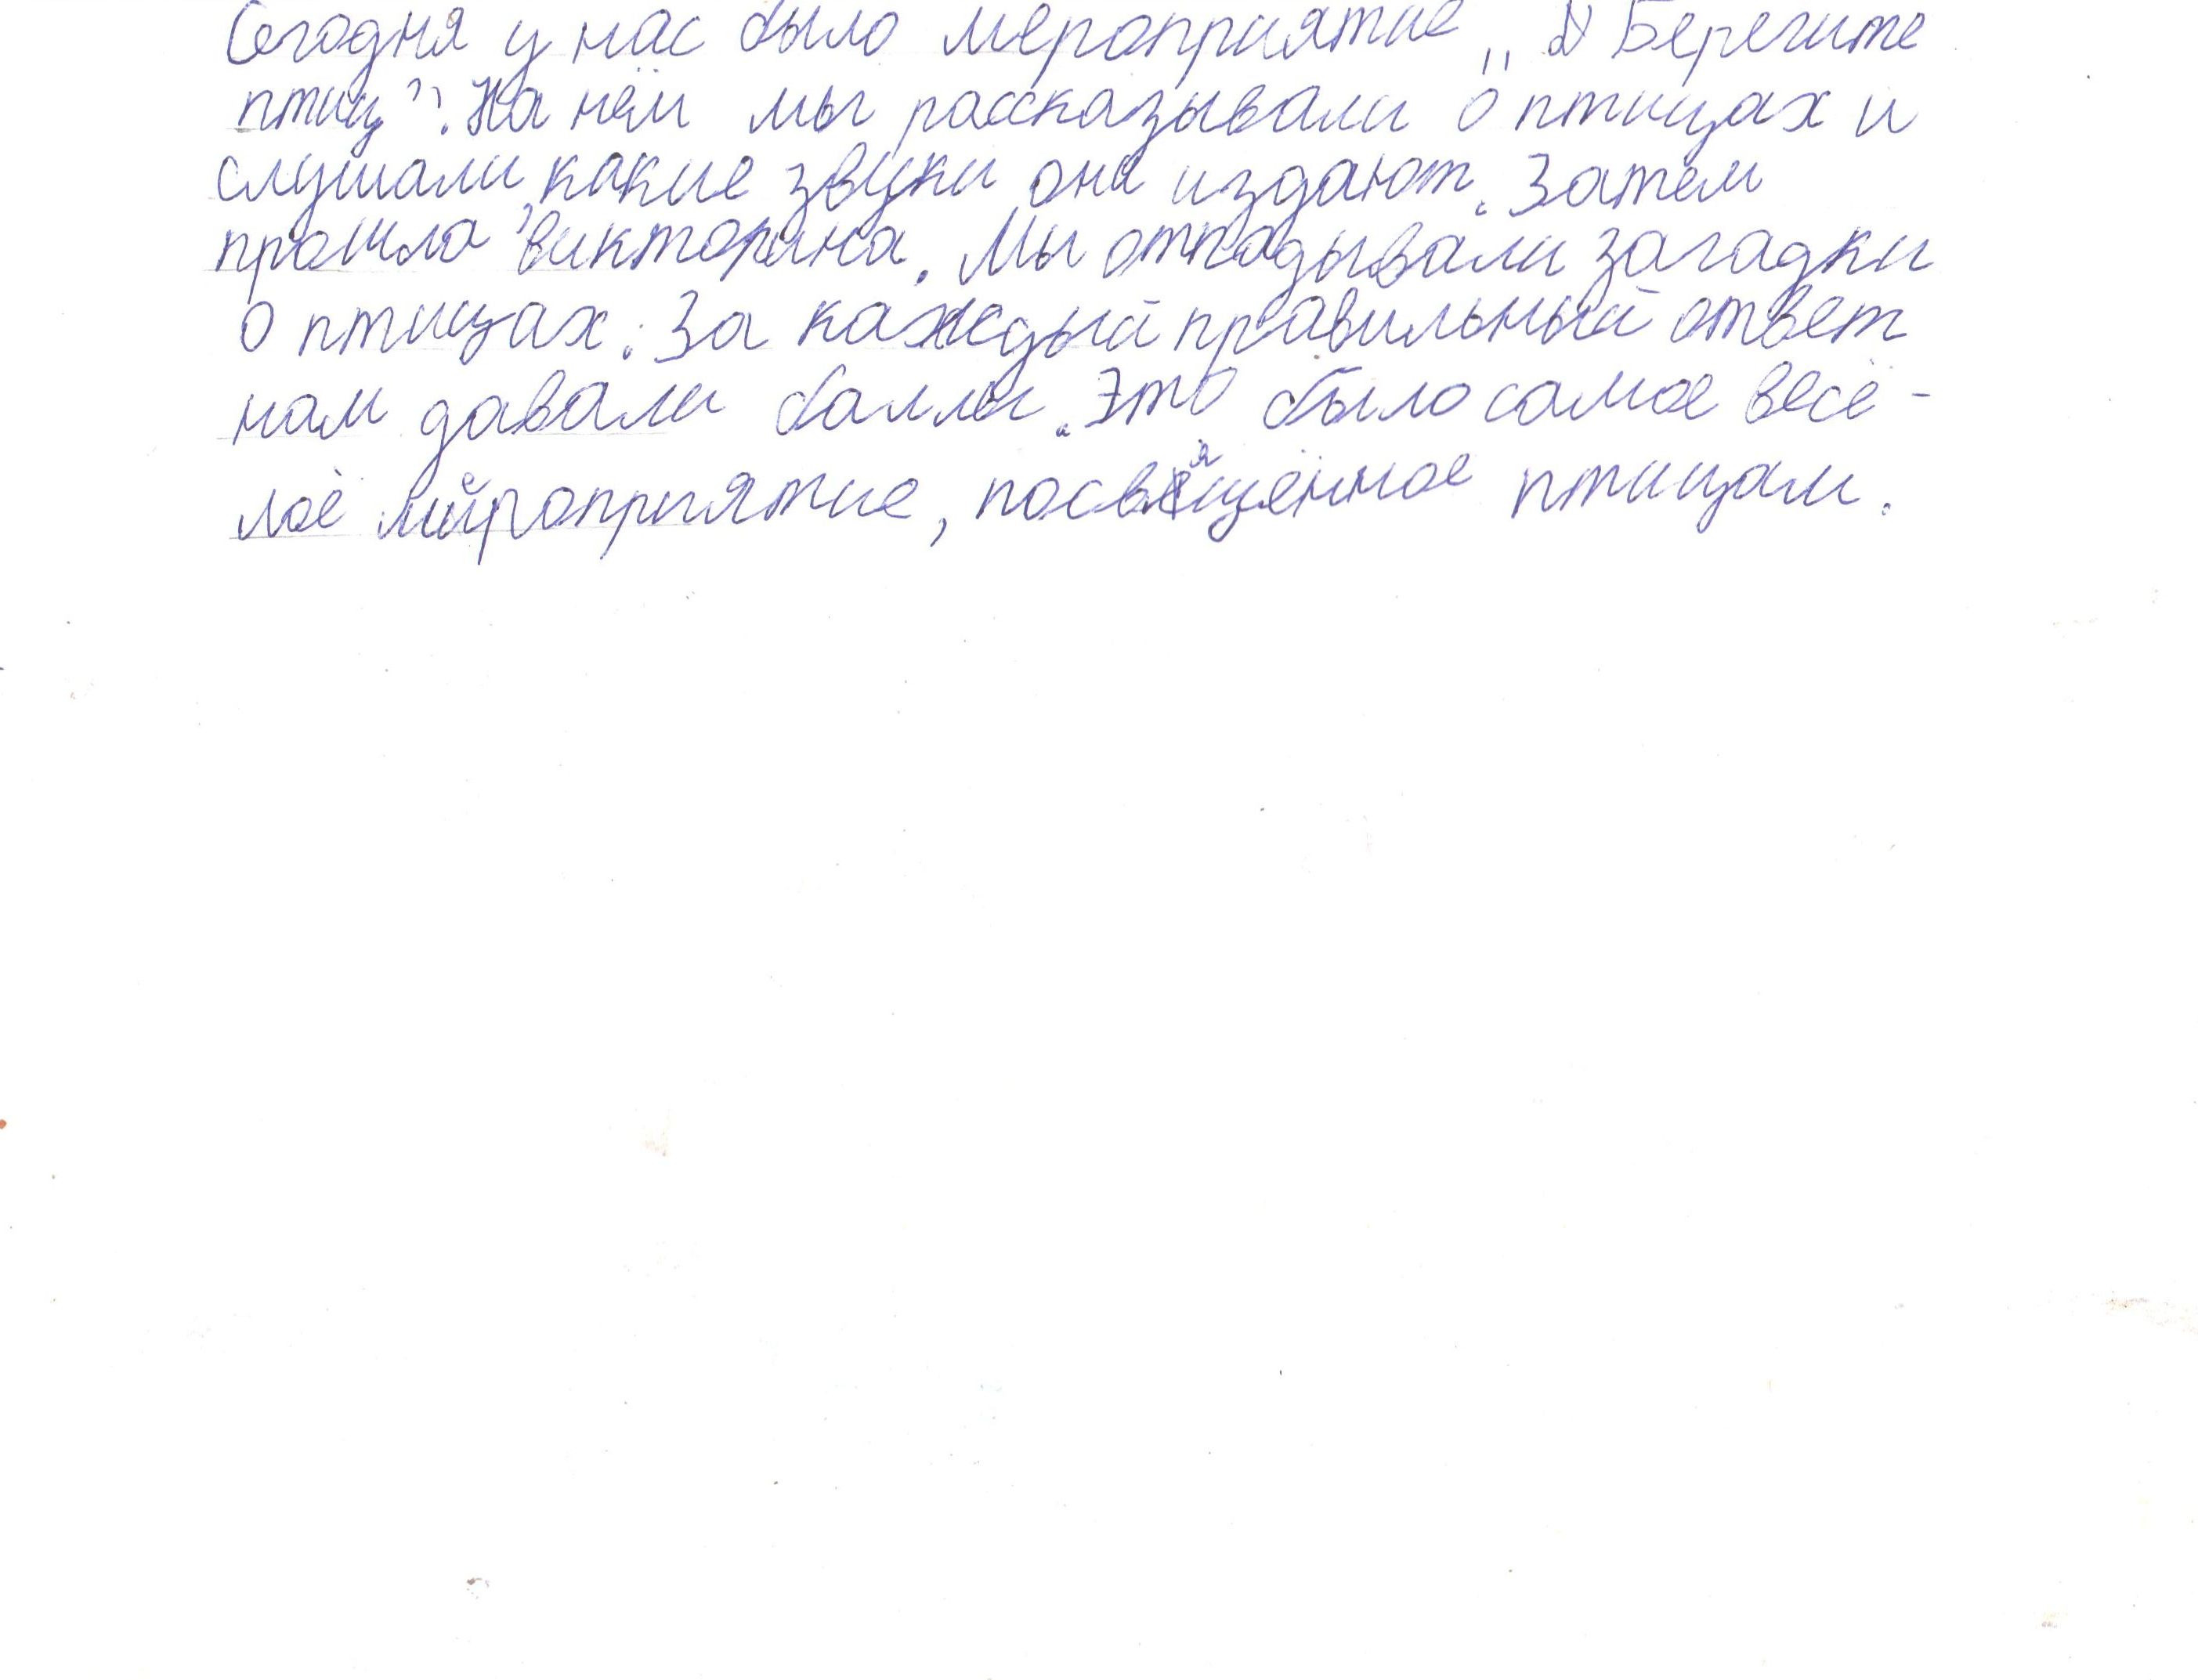 Сегодня у нас было мероприятие „Берегите
птиц”. На нём мы рассказывали о птицах и
слушали, какие звуки они издают. Затем
прошла викторина. Мы отгадывали загадки
о птицах. За каждый правильный ответ
нам давали баллы. Это было самое весё-
лое мероприятие, посвящённое птицам.